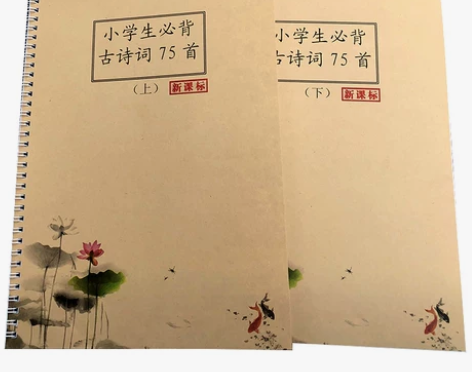 小学生必背
古诗词 75 首
（上） 新课标
小学生必背
古诗词 75 首
（下） 新课标